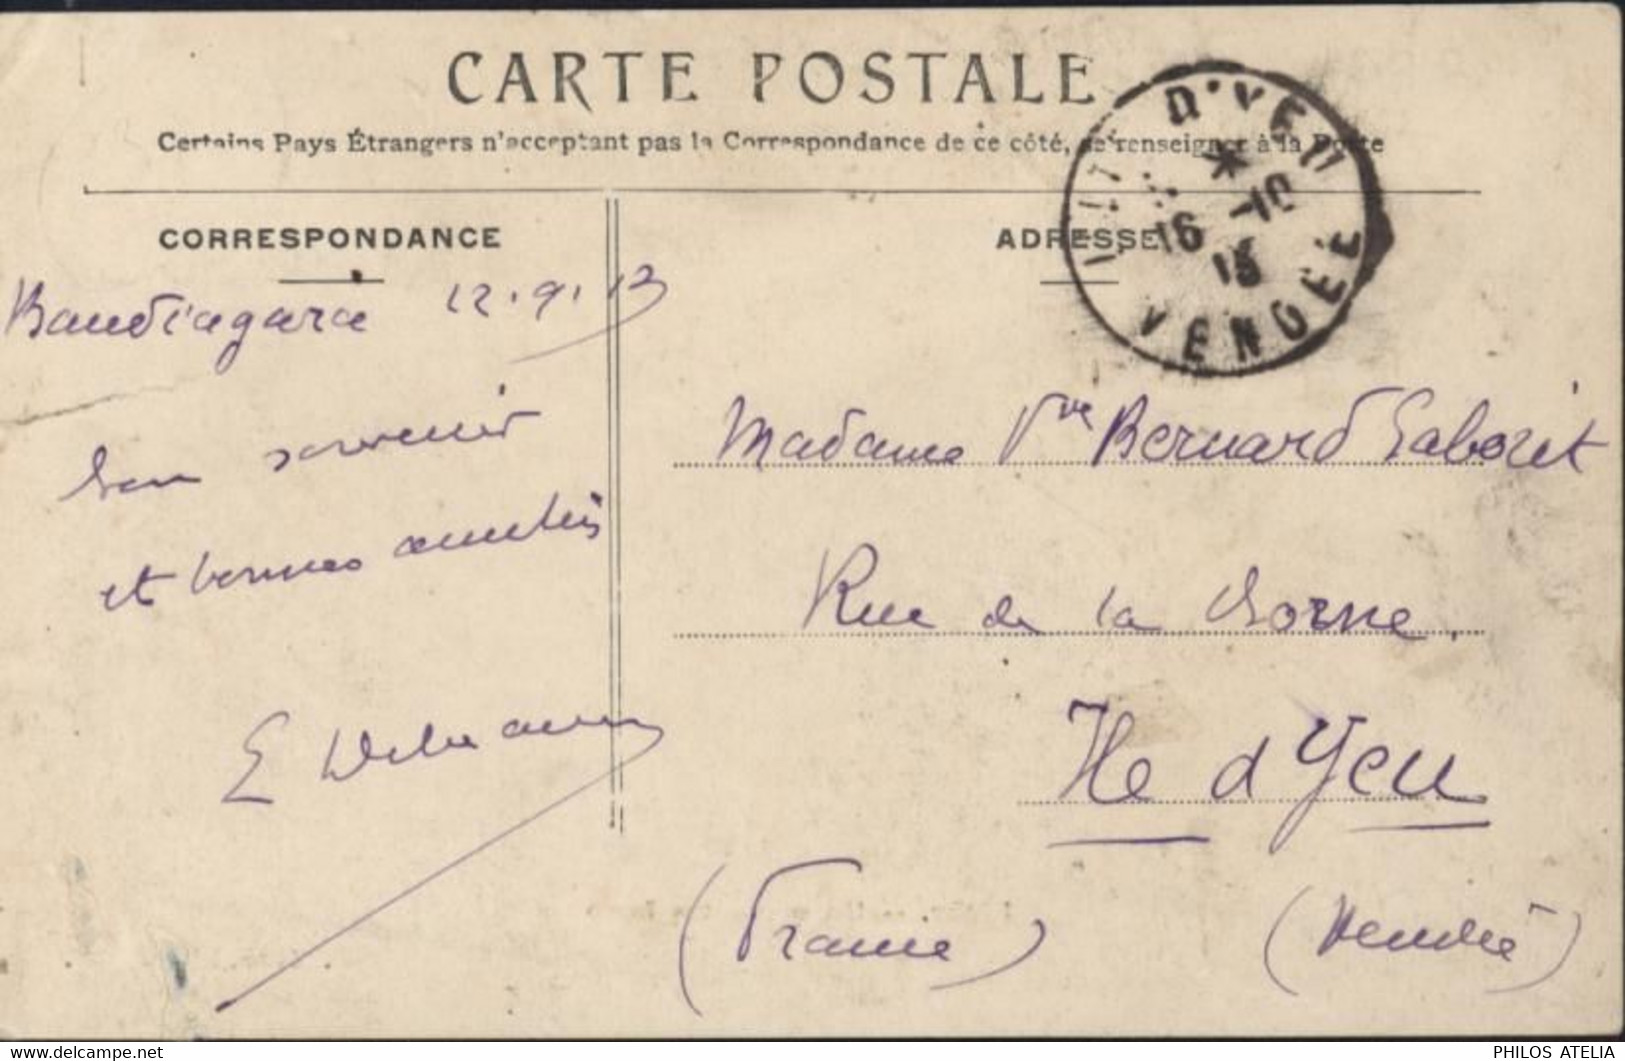 CARTE POSTALE
Certains Pays Étrangers n'acceptent pas la Correspondance de ce côté, se renseigner à la Poste
D'YEU
16 -10
13
VENDEE
CORRESPONDANCE
ADRESSE
Bandiagara 12.9.13
bon souvenir
et bonnes amitiés
E
Madame Vve Bernard Gaborit
Rue de la Borne.
Ile d Yeu
(France) (Vendée)
delcampe.net
PHILOS ATELIA